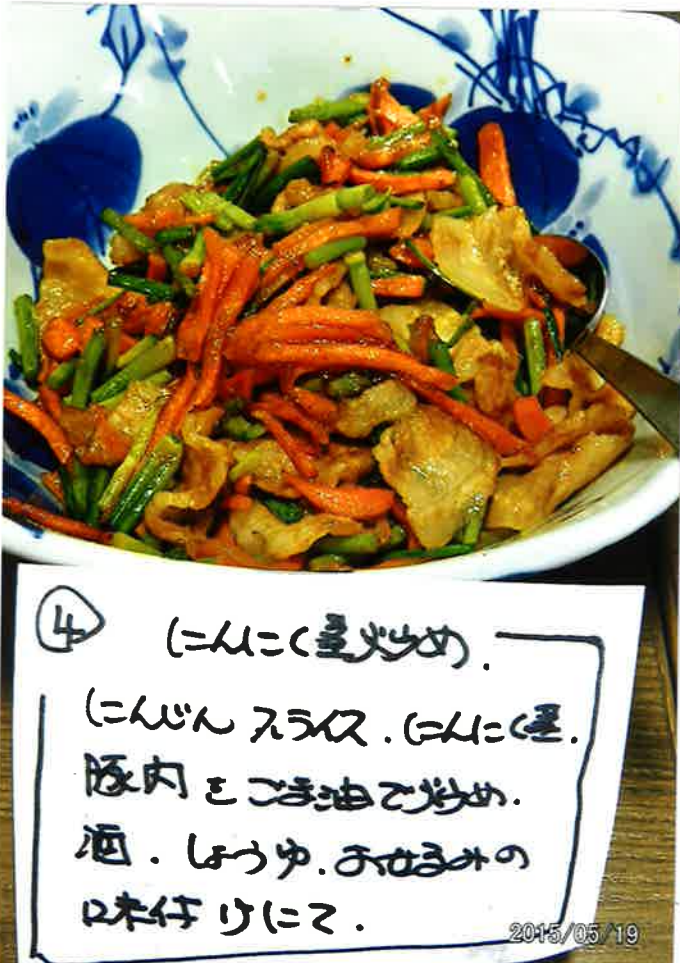 ④ にんにく茎炒め.
にんじん スライス. にんにく茎.
豚肉をごま油で炒め.
酒. しょうゆ.
味付けにて.
2015/05/19